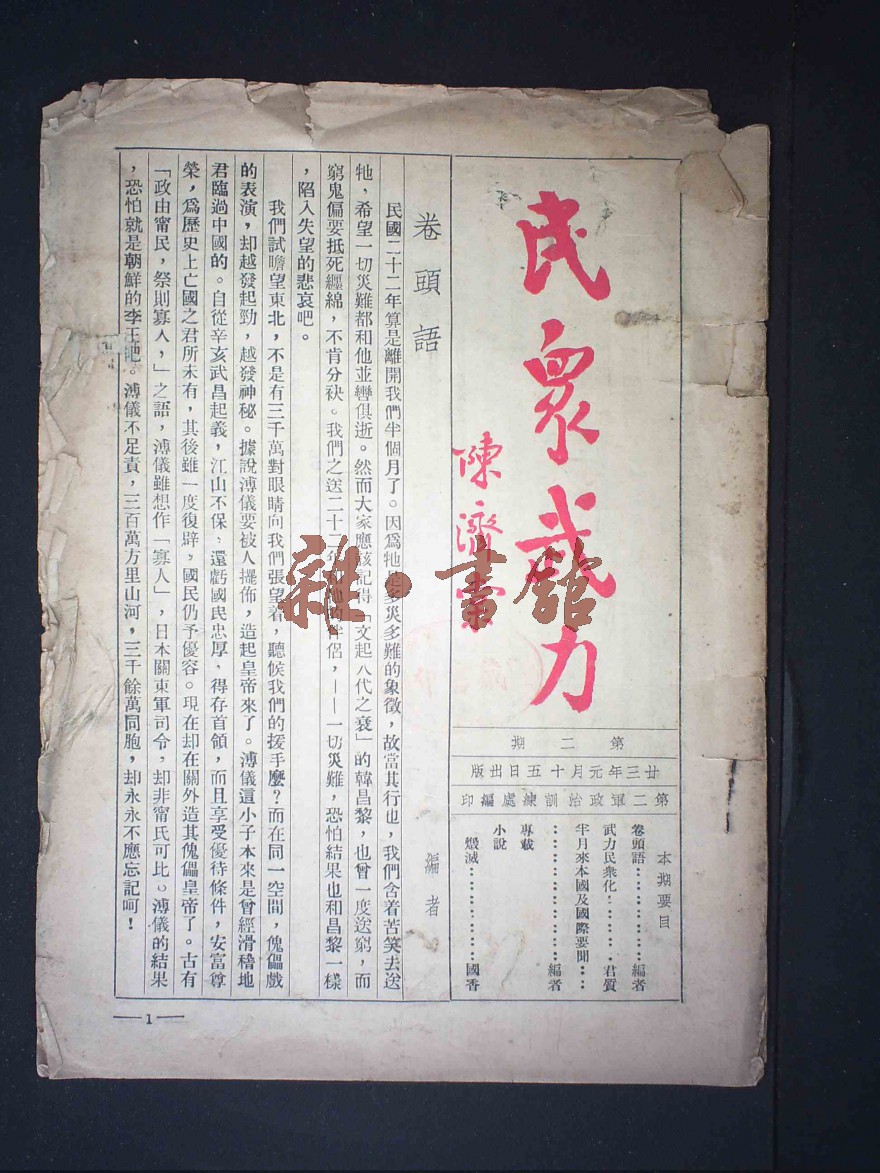 民眾武力
陳濟棠
第二期
廿三年元月十五日出版
第二軍政治訓練處編印
本期要目
卷頭語…………編者
武力民衆化…………君質
半月來本國及國際要聞……
……………編者
專載
小說
燬滅…………國香
卷頭語
編者
民國二十二年算是離開我們半個月了。因爲牠是多災多難的象徵，故當其行也，我們含着苦笑去送
牠，希望一切災難都和他並轡俱逝。然而大家應該記得「文起八代之衰」的韓昌黎，也曾一度送窮，而
窮鬼偏要抵死纏綿，不肯分袂。我們之送二十二年和牠的伴侶，——一切災難，恐怕結果也和昌黎一樣
，陷入失望的悲哀吧。
我們試瞻望東北，不是有三千萬對眼睛向我們張望着，聽候我們的援手麼？而在同一空間，傀儡戲
的表演，却越發起勁，越發神秘。據說溥儀要被人擺佈，造起皇帝來了。溥儀這小子本來是曾經滑稽地
君臨過中國的。自從辛亥武昌起義，江山不保，還虧國民忠厚，得存首領，而且享受優待條件，安富尊
榮，爲歷史上亡國之君所未有，其後雖一度復辟，國民仍予優容。現在却在關外造其傀儡皇帝了。古有
「政由甯民，祭則寡人，」之語，溥儀雖想作「寡人」，日本關東軍司令，却非甯氏可比。溥儀的結果
，恐怕就是朝鮮的李王吧。溥儀不足責，三百萬方里山河，三千餘萬同胞，却永永不應忘記呵！
—1—
雜·書館